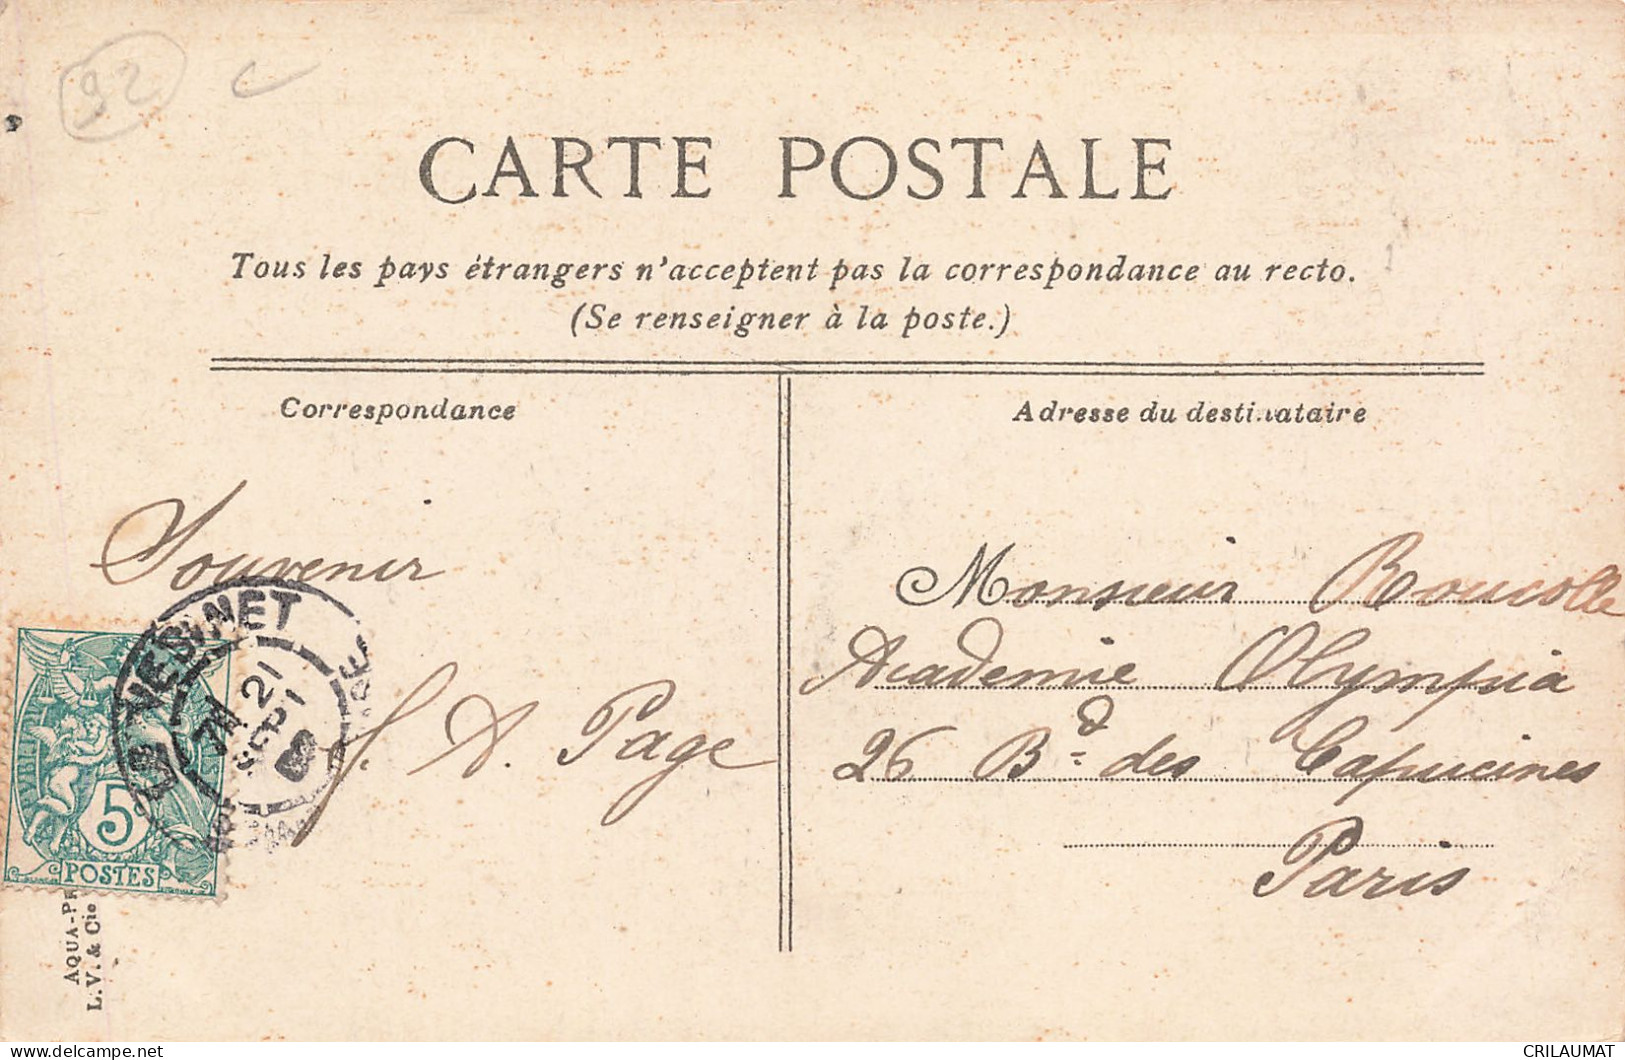 92
CARTE POSTALE
Tous les pays étrangers n'acceptent pas la correspondance au recto.
(Se renseigner à la poste.)
Correspondance
Adresse du destinataire
Souvenir
A. Page
Monsieur Roucolle
Academie Olympia
26 Bd des Capucines
Paris
LE VESINET
21
5
POSTES
AQUA-PH
L.V. & Cie
CRILAUMAT